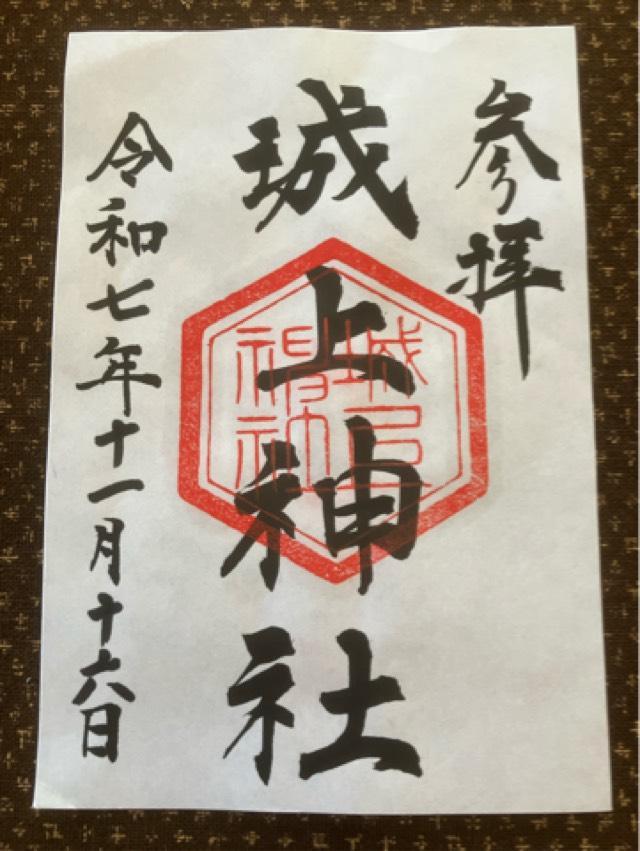 参拝
城上神社
令和七年十一月十六日